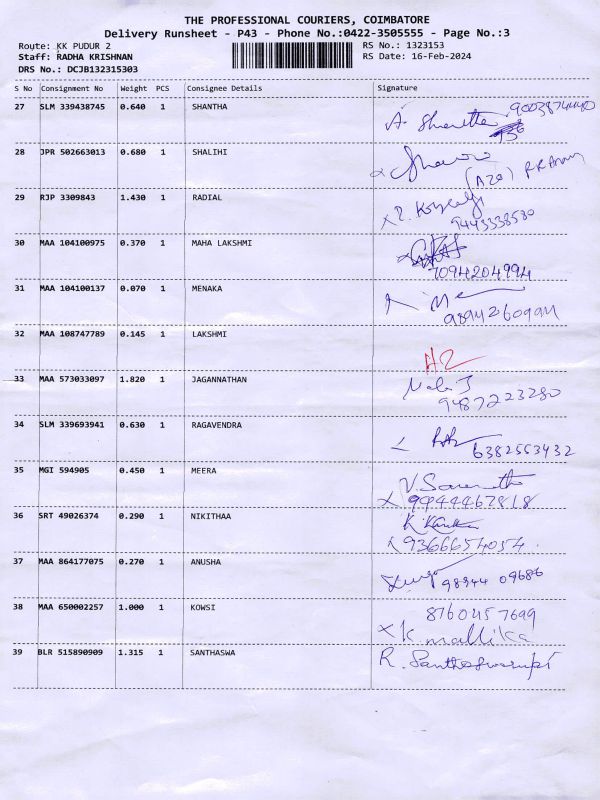 THE PROFESSIONAL COURIERS, COIMBATORE
Delivery Runsheet - P43 - Phone No.:0422-3505555 - Page No.:3
Route: KK PUDUR 2 RS No.: 1323153
Staff: RADHA KRISHNAN RS Date: 16-Feb-2024
DRS No.: DCJB132315303
S No Consignment No Weight PCS Consignee Details Signature
27 SLM 339438745 0.640 1 SHANTHA
A. Shantha
28 JPR 502663013 0.680 1 SHALIHI
(A20)
29 RJP 3309843 1.430 1 RADIAL
9443338580
30 MAA 104100975 0.370 1 MAHA LAKSHMI
7094204994
31 MAA 104100137 0.070 1 MENAKA
9894260994
32 MAA 108747789 0.145 1 LAKSHMI
H2
33 MAA 573033097 1.820 1 JAGANNATHAN
Mala J
9487223280
34 SLM 339693941 0.630 1 RAGAVENDRA
6382553432
35 MGI 594905 0.450 1 MEERA
X 9944467818
36 SRT 49026374 0.290 1 NIKITHAA
9366654054
37 MAA 864177075 0.270 1 ANUSHA
98944 09686
38 MAA 650002257 1.000 1 KOWSI
8760457699
X K. mallika
39 BLR 515890909 1.315 1 SANTHASWA